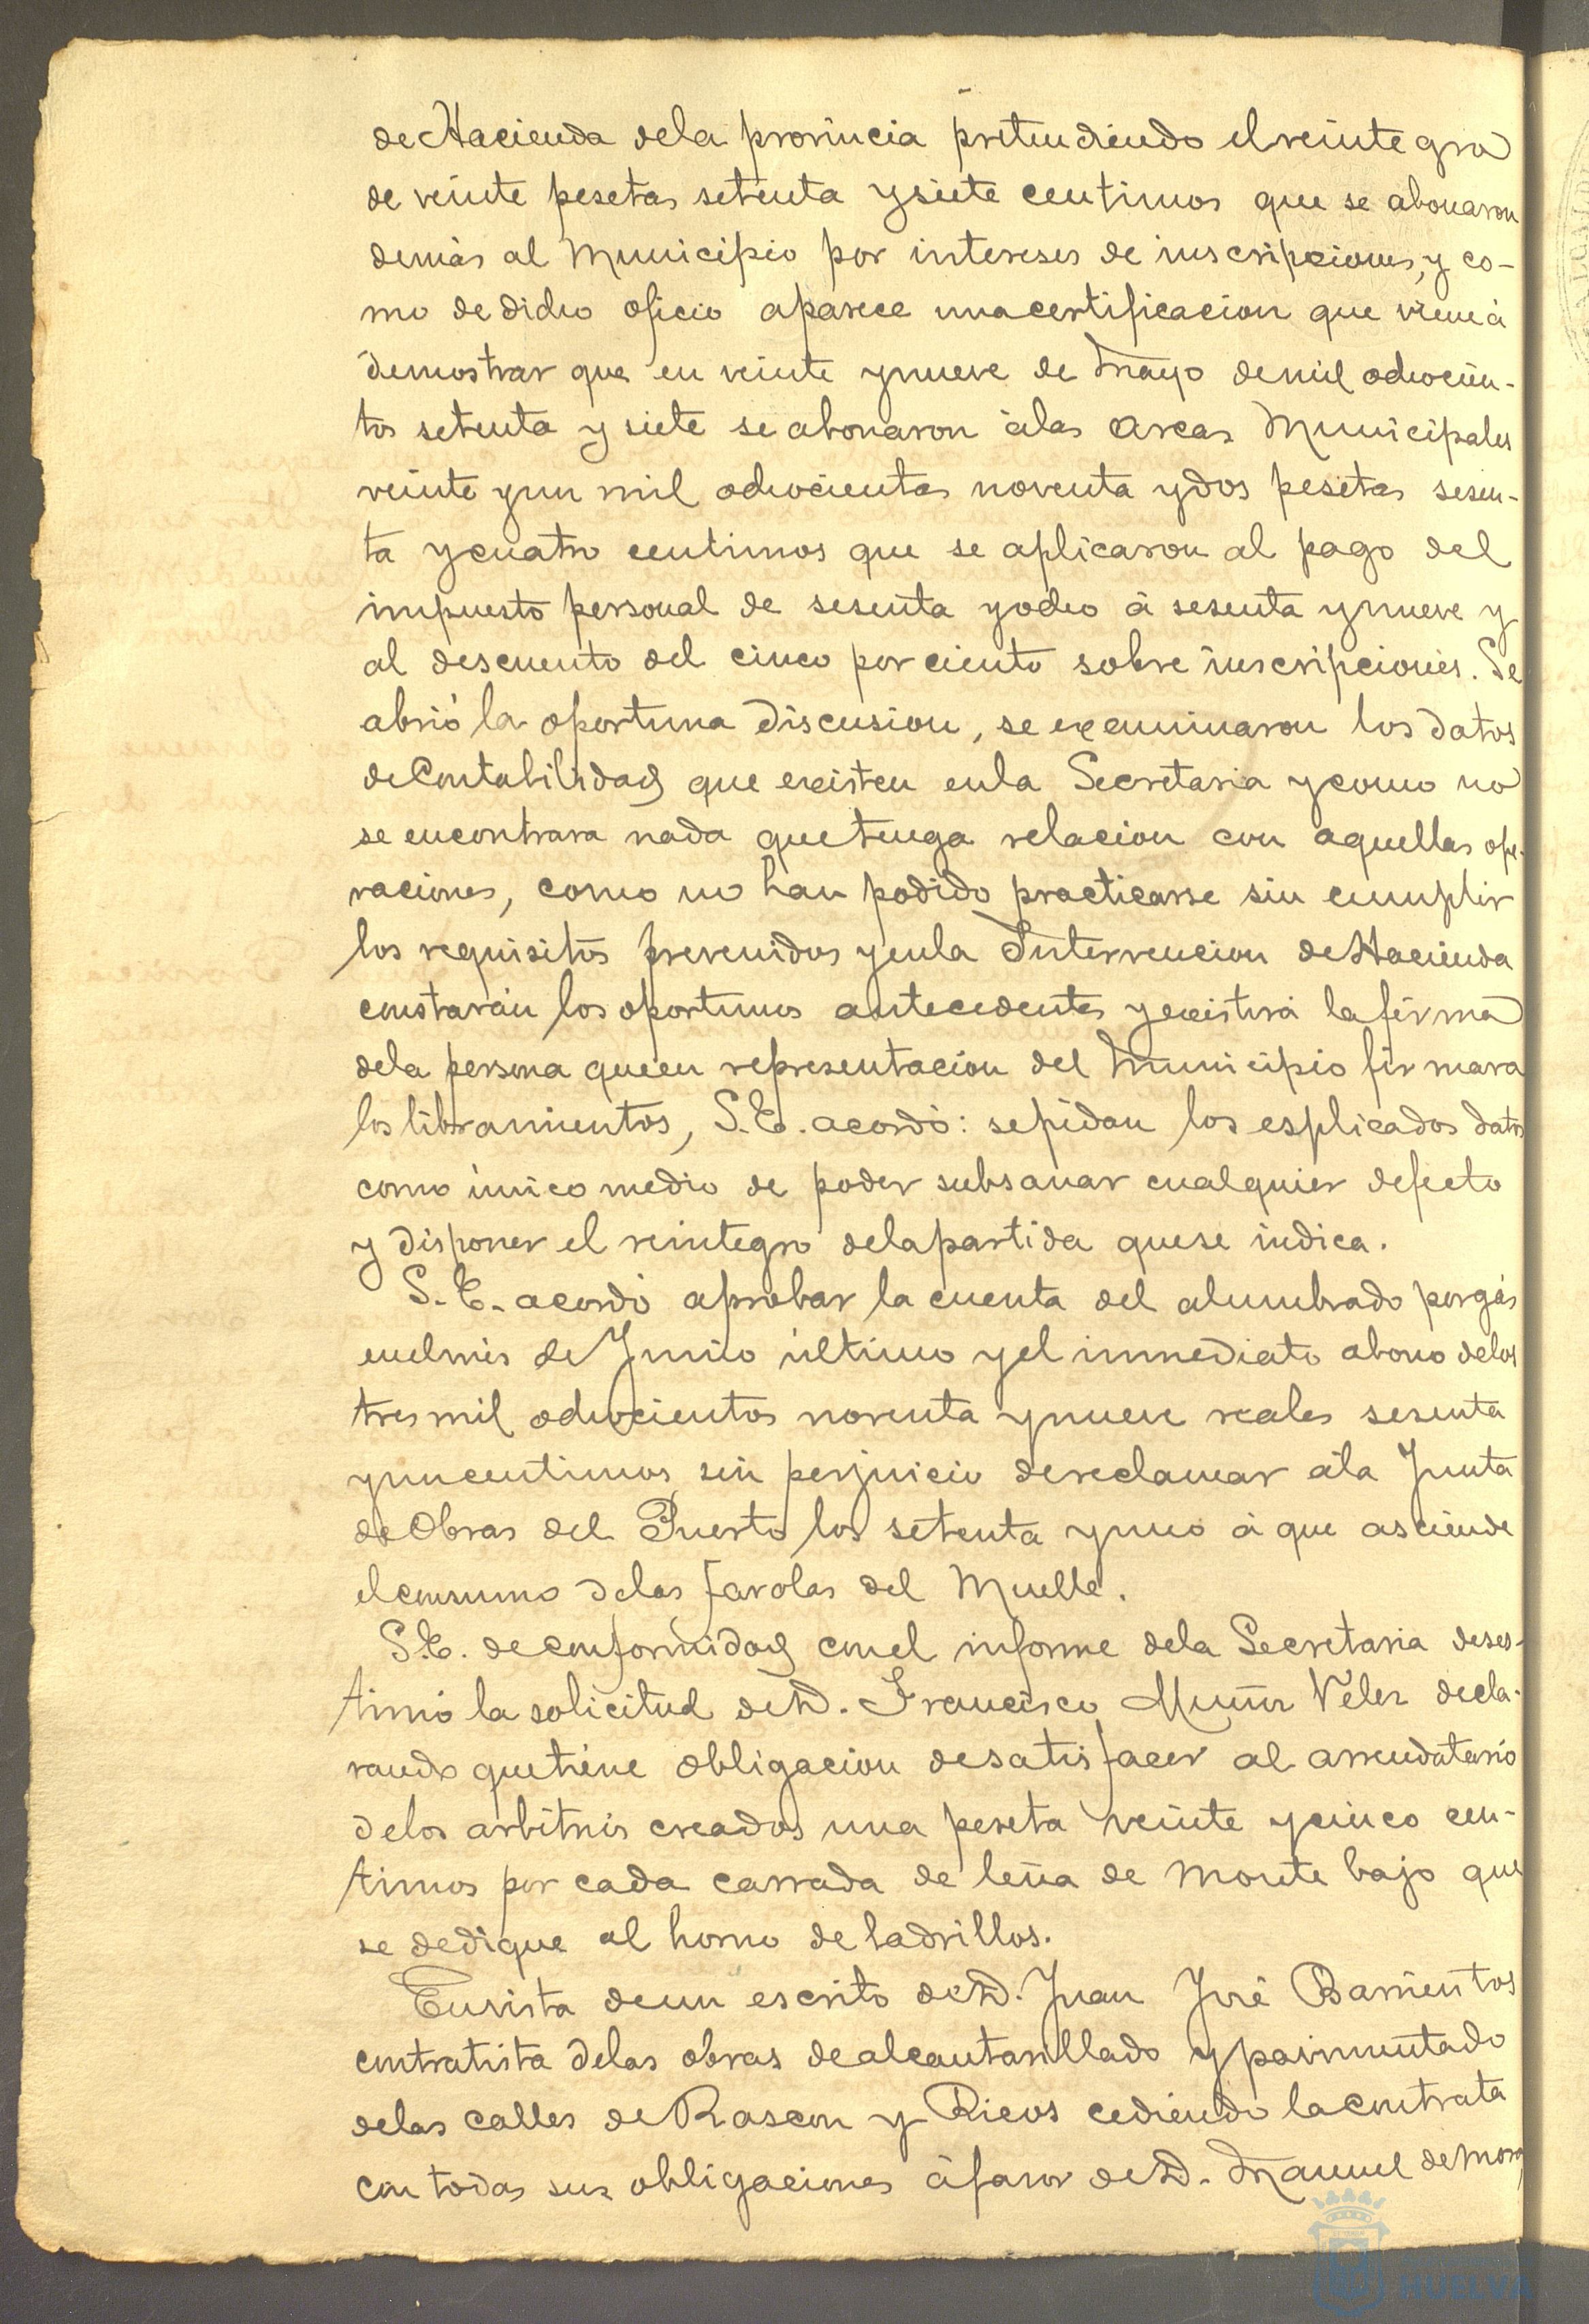 de Hacienda dela provincia pretendiendo el reintegro
de veinte pesetas setenta y siete centimos que se abonaron
demás al Municipio por intereses de inscripciones, y co-
mo de dicho oficio aparece una certificacion que viene á
demostrar que en veinte y nueve de Mayo de mil ochocien-
tos setenta y siete se abonaron á las Arcas Municipales
veinte y un mil ochocientas noventa y dos pesetas sesen-
ta y cuatro centimos que se aplicaron al pago del
impuesto personal de sesenta y ocho á sesenta y nueve y
al descuento del cinco por ciento sobre inscripciones. Se
abrió la oportuna discusion, se examinaron los datos
de Contabilidad que existen en la Secretaria y como no
se encontrara nada que tenga relacion con aquellas ope-
raciones, como no han podido practicarse sin cumplir
los requisitos prevenidos y en la Intervencion de Hacienda
constarán los oportunos antecedentes y existirá la firma
dela persona que en representacion del Municipio firmara
los libramientos, S.E. acordó: se pidan los esplicados datos
como único medio de poder subsanar cualquier defecto
y disponer el reintegro dela partida que se indica.
S.E. acordó aprobar la cuenta del alumbrado por gás
en el mes de Junio último y el inmediato abono delos
tres mil ochocientos noventa y nueve reales sesenta
y un centimos, sin perjuicio de reclamar á la Junta
de Obras del Puerto los setenta y uno á que asciende
el consumo delas farolas del Muelle.
S.E. de conformidad con el informe dela Secretaria deses-
timó la solicitud de D. Francisco Muñoz Velez decla-
rando que tiene obligacion de satisfacer al arrendatario
delos arbitrios creados una peseta veinte y cinco cen-
timos por cada carrada de leña de monte bajo que
se dedique al horno de ladrillos.
En vista de un escrito de D. Juan José Barrientos
contratista delas obras de alcantarillado y pavimentado
delas calles de Rascon y Ricos cediendo la contrata
con todas sus obligaciones á favor de D. Manuel de Mora
HUELVA